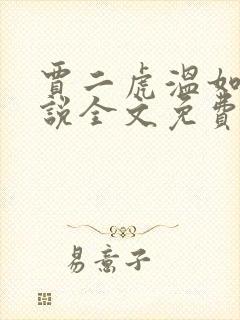 賈二虎溫如
說全文免費
易意子